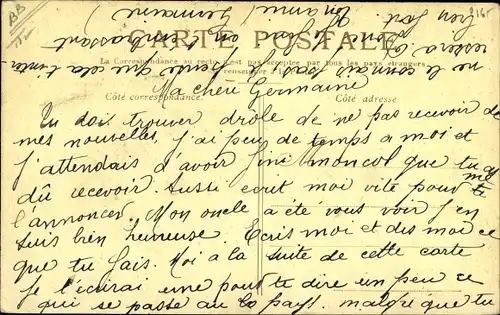 CARTE POSTALE
La Correspondance au recto n'est pas acceptée par tous les pays étrangers
renseigner à la
Côté correspondance.
Côté adresse.
Ma chère Germaine
Tu dois trouver drôle de ne pas recevoir de
mes nouvelles, j'ai peu de temps a moi et
j'attendais d'avoir fini mon col que tu as
dû recevoir. Aussi ecrit moi vite pour me
l'annoncer. Mon oncle a été vous voir j'en
suis bien heureuse Ecris moi et dis moi ce
que tu fais. Moi à la suite de cette carte
je t'écrirai une pour te dire un peu ce
qui se passe au pays. malgré que tu
ne le connais pas, je pense que cela t'inter
essera
en t'embrassant
bien fort
Ton amie
Germaine
BB